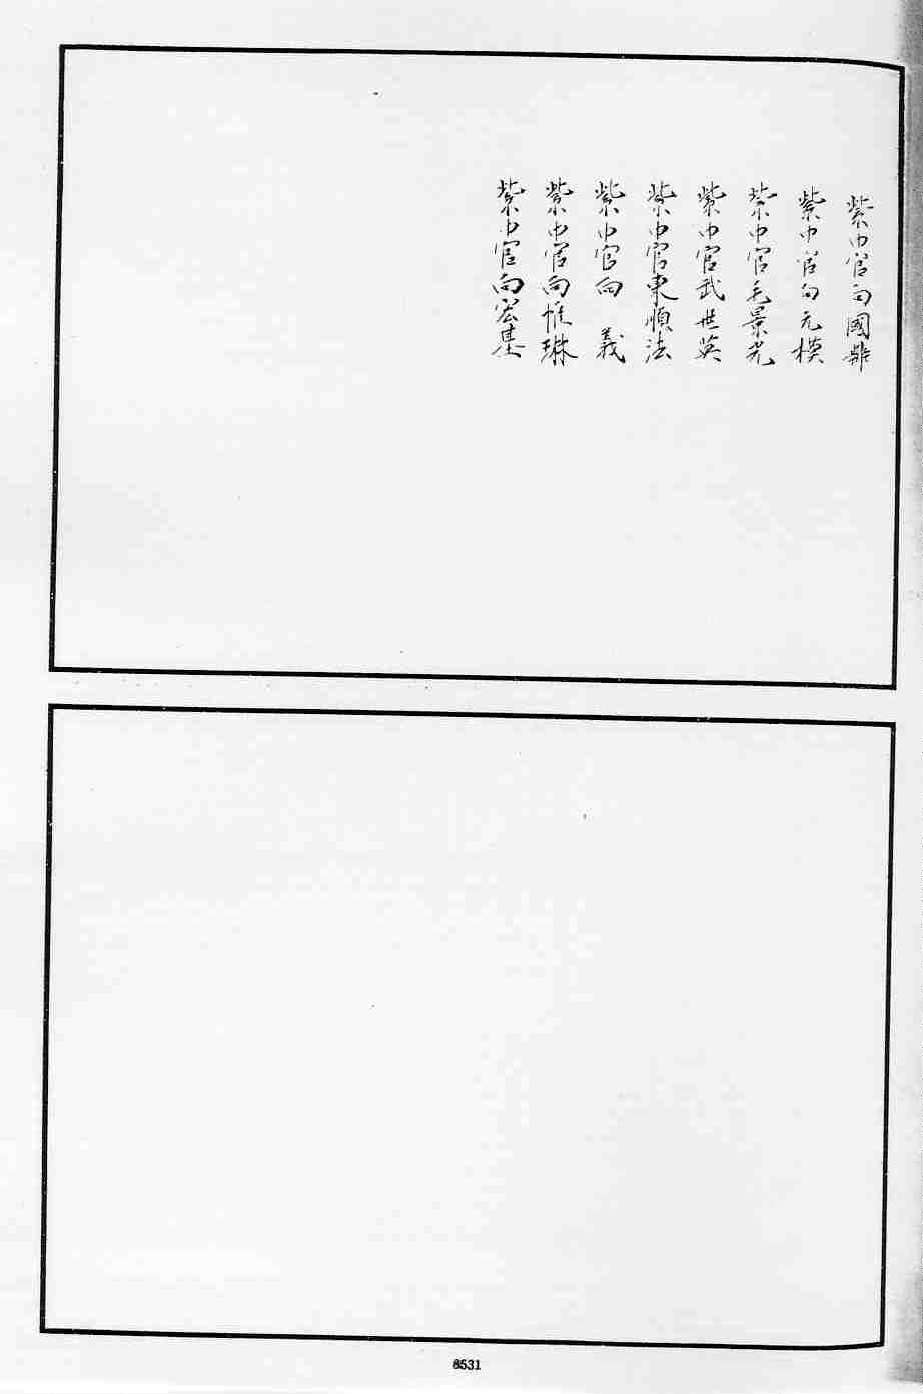 紫巾官向國鼎
紫巾官向元模
紫巾官毛景光
紫巾官武世英
紫巾官東順法
紫巾官向 義
紫巾官向惟琳
紫巾官向宏基
8531